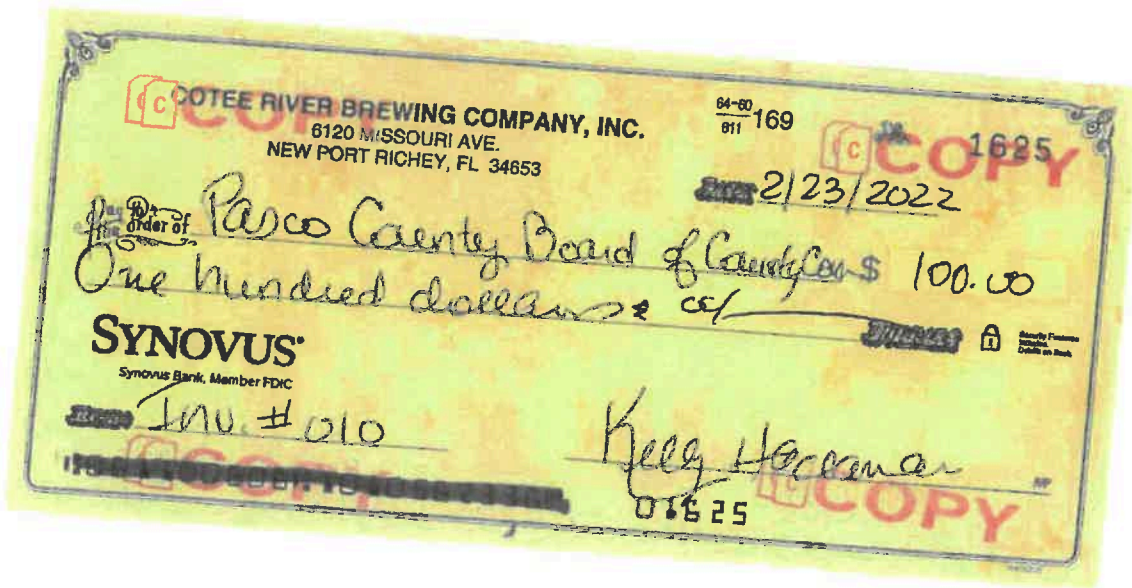 COTEE RIVER BREWING COMPANY, INC.
6120 MISSOURI AVE.
NEW PORT RICHEY, FL 34653
64-60/611 169
1625
COPY
COPY
2/23/2022
Pay to the order of Pasco County Board of County Com $ 100.00
One hundred dollars &
Security Features Included. Details on Back.
SYNOVUS
Synovus Bank, Member FDIC
Inv. # 010
Kelly
MP
COPY
COPY
01625